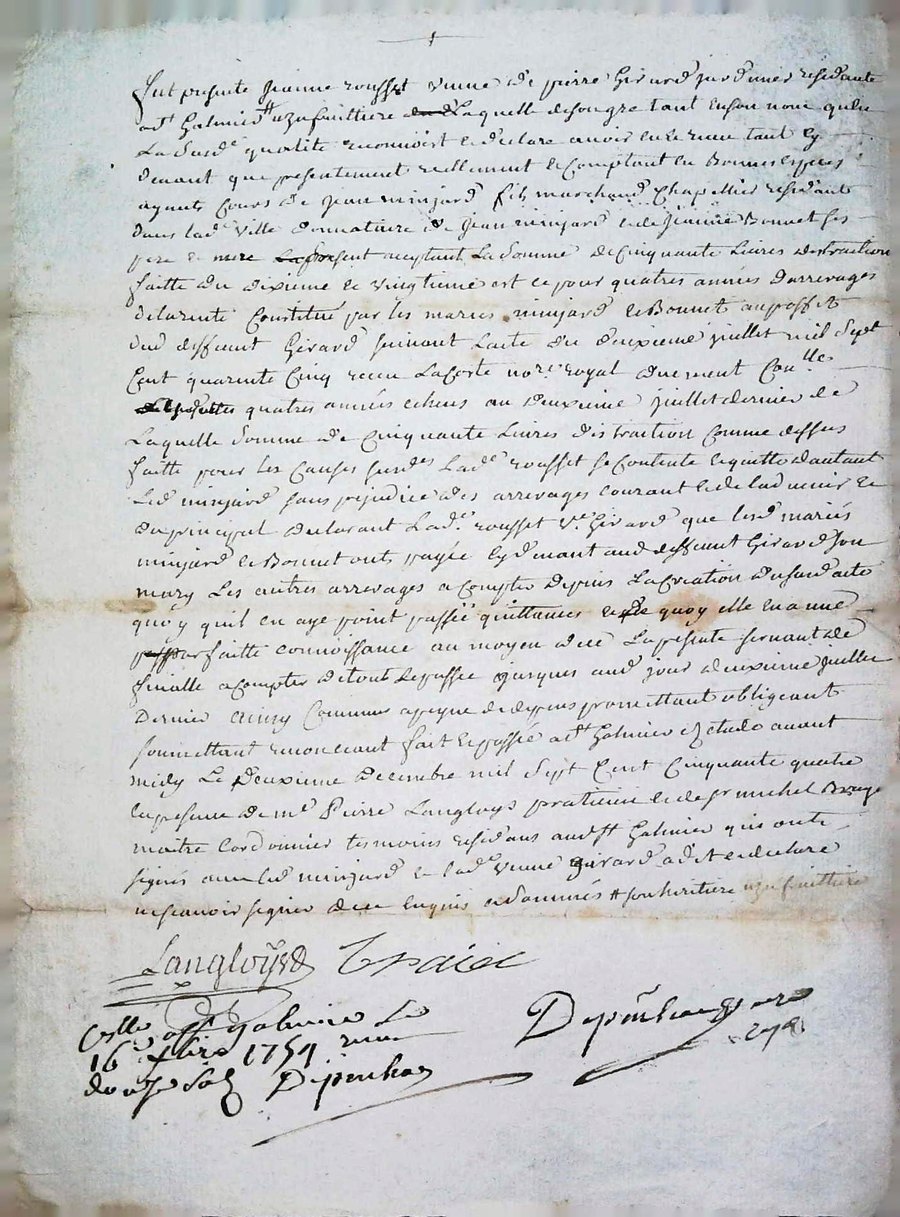 Fut presente Jeanne rousset veuve de pierre Girard jardinier residante
a St Galmier # uzufruittiere laquelle de son gre tant en son nom qu'en
La susde qualité reconnoist et declare avoir eu et receu tant cy
devant que presentement reellement et Comptant en Bonnes especes
ayants Cours de Jean minjard fils marchand Chapellier residant
dans lade Ville donnataire de Jean minjard et de Jeanne Bonnet ses
pere et mere present acceptant La Somme de Cinquante Livres distraction
faitte du dixieme et vingtieme est ce pour quatres années d'arrerages
de la rente Constitué par les mariés minjard et Bonnet au proffit
dud deffunt Girard suivant l'acte du deuxieme juillet mil Sept
Cent quarente Cinq receu Lacoste nore royal duement Conlle
quatres années echeus au deuxieme juillet dernier de
Laquelle Somme de Cinquante Livres distraction Comme dessus
faitte pour les Causes susdes Lade rousset se Contente et quitte d'autant
Led minjard sans prejudice des arrerages courant et de lad
du principal declarant Lade rousset Ve Girard que lesd mariés
minjard et Bonnet ont payée cy devant aud deffunt Girard son
mary Les autres arrerages a Compter depuis La Creation dususd acte
quoy quil en aye point passée quittances et de quoy elle en a une
parfaitte connoissance au moyen de ce La presente servant de
finalle a Compter de tout Le passée jusques aud jour deuxieme juillet
Dernier ainsy Convenu a peyne de depens promettant obligeant
soumettant renonceant fait et passée a St Galmier Etude avant
midy Le Deuxieme Decembre mil Sept Cent Cinquante quatre
en presence de me Pierre Langloys praticien et de sr michel
maitre Cordonnier tesmoins residans aud St Galmier qui ont
signés avec led minjard et lade veuve Girard a dit et declaré
ne scavoir signer de ce enquis et Sommés # son heritiere uzufruittiere
Langloÿs
Conlle a St Galmier Le
16 Xbre 1754 receu
Depinhac